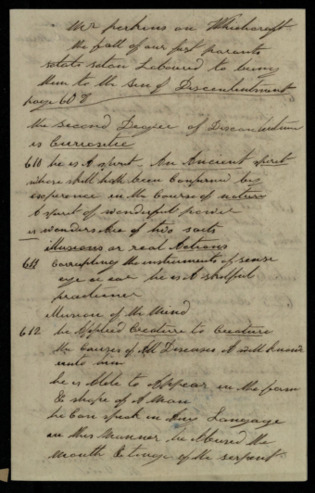 Mr perkins on Whichcraft
the fall of our first parents
state satan Laboured to bring
them to the sin of Discontentment
page 60
the second Degree of Discontentment
is Curriositie
610 he is A spirit. An Ancient spirit
whose skill hath been Confirmed by
experience in the Course of nature
A spirit of wonderful power
wonders Are of two sorts
illusions or real Actions
611 Corrupting the instruments of sense
eye or ear he is A skilful
practisioner
Illusion of the Mind
612 he Applies Creature to Creature
the Causes of All Diseases A well known
unto him
he is Able to Appear in the form
& shape of A Man
he Can speak in Any Language
in this Manner he Abused the
Mouth & tongue of the serpent